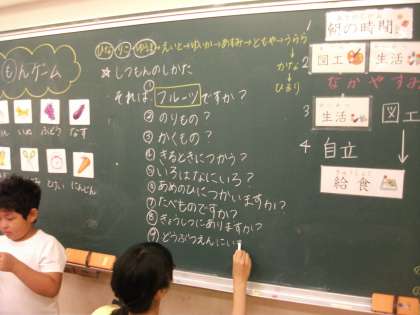 ひな りこ ゆうま→えいと→ゆいか→あすみ→ともや→うらら
↓
かな
↓
ひまり
もんゲーム
☆しつもんのしかた
①それは、フルーツですか?
②のりもの?
③かくもの?
④きるときにつかう?
⑤いろはなにいろ?
⑥あめのひにつかいますか?
⑦たべものですか?
⑧きょうしつにありますか?
⑨どうぶつえんにいま
ぶどう
なす
にんじん
1
朝の時間
2
図工
生活
なかやすみ
3
生活
図工
4
自立
給食